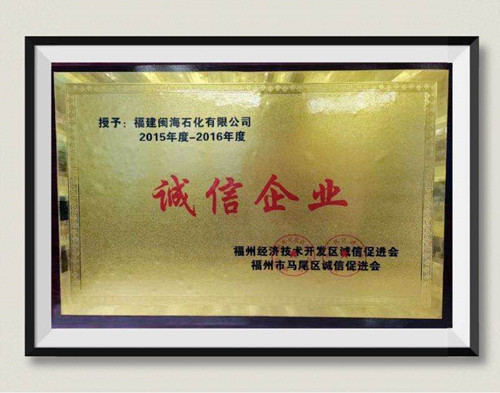 授予：福建闽海石化有限公司
2015年度-2016年度
诚信企业
福州经济技术开发区诚信促进会
福州市马尾区诚信促进会